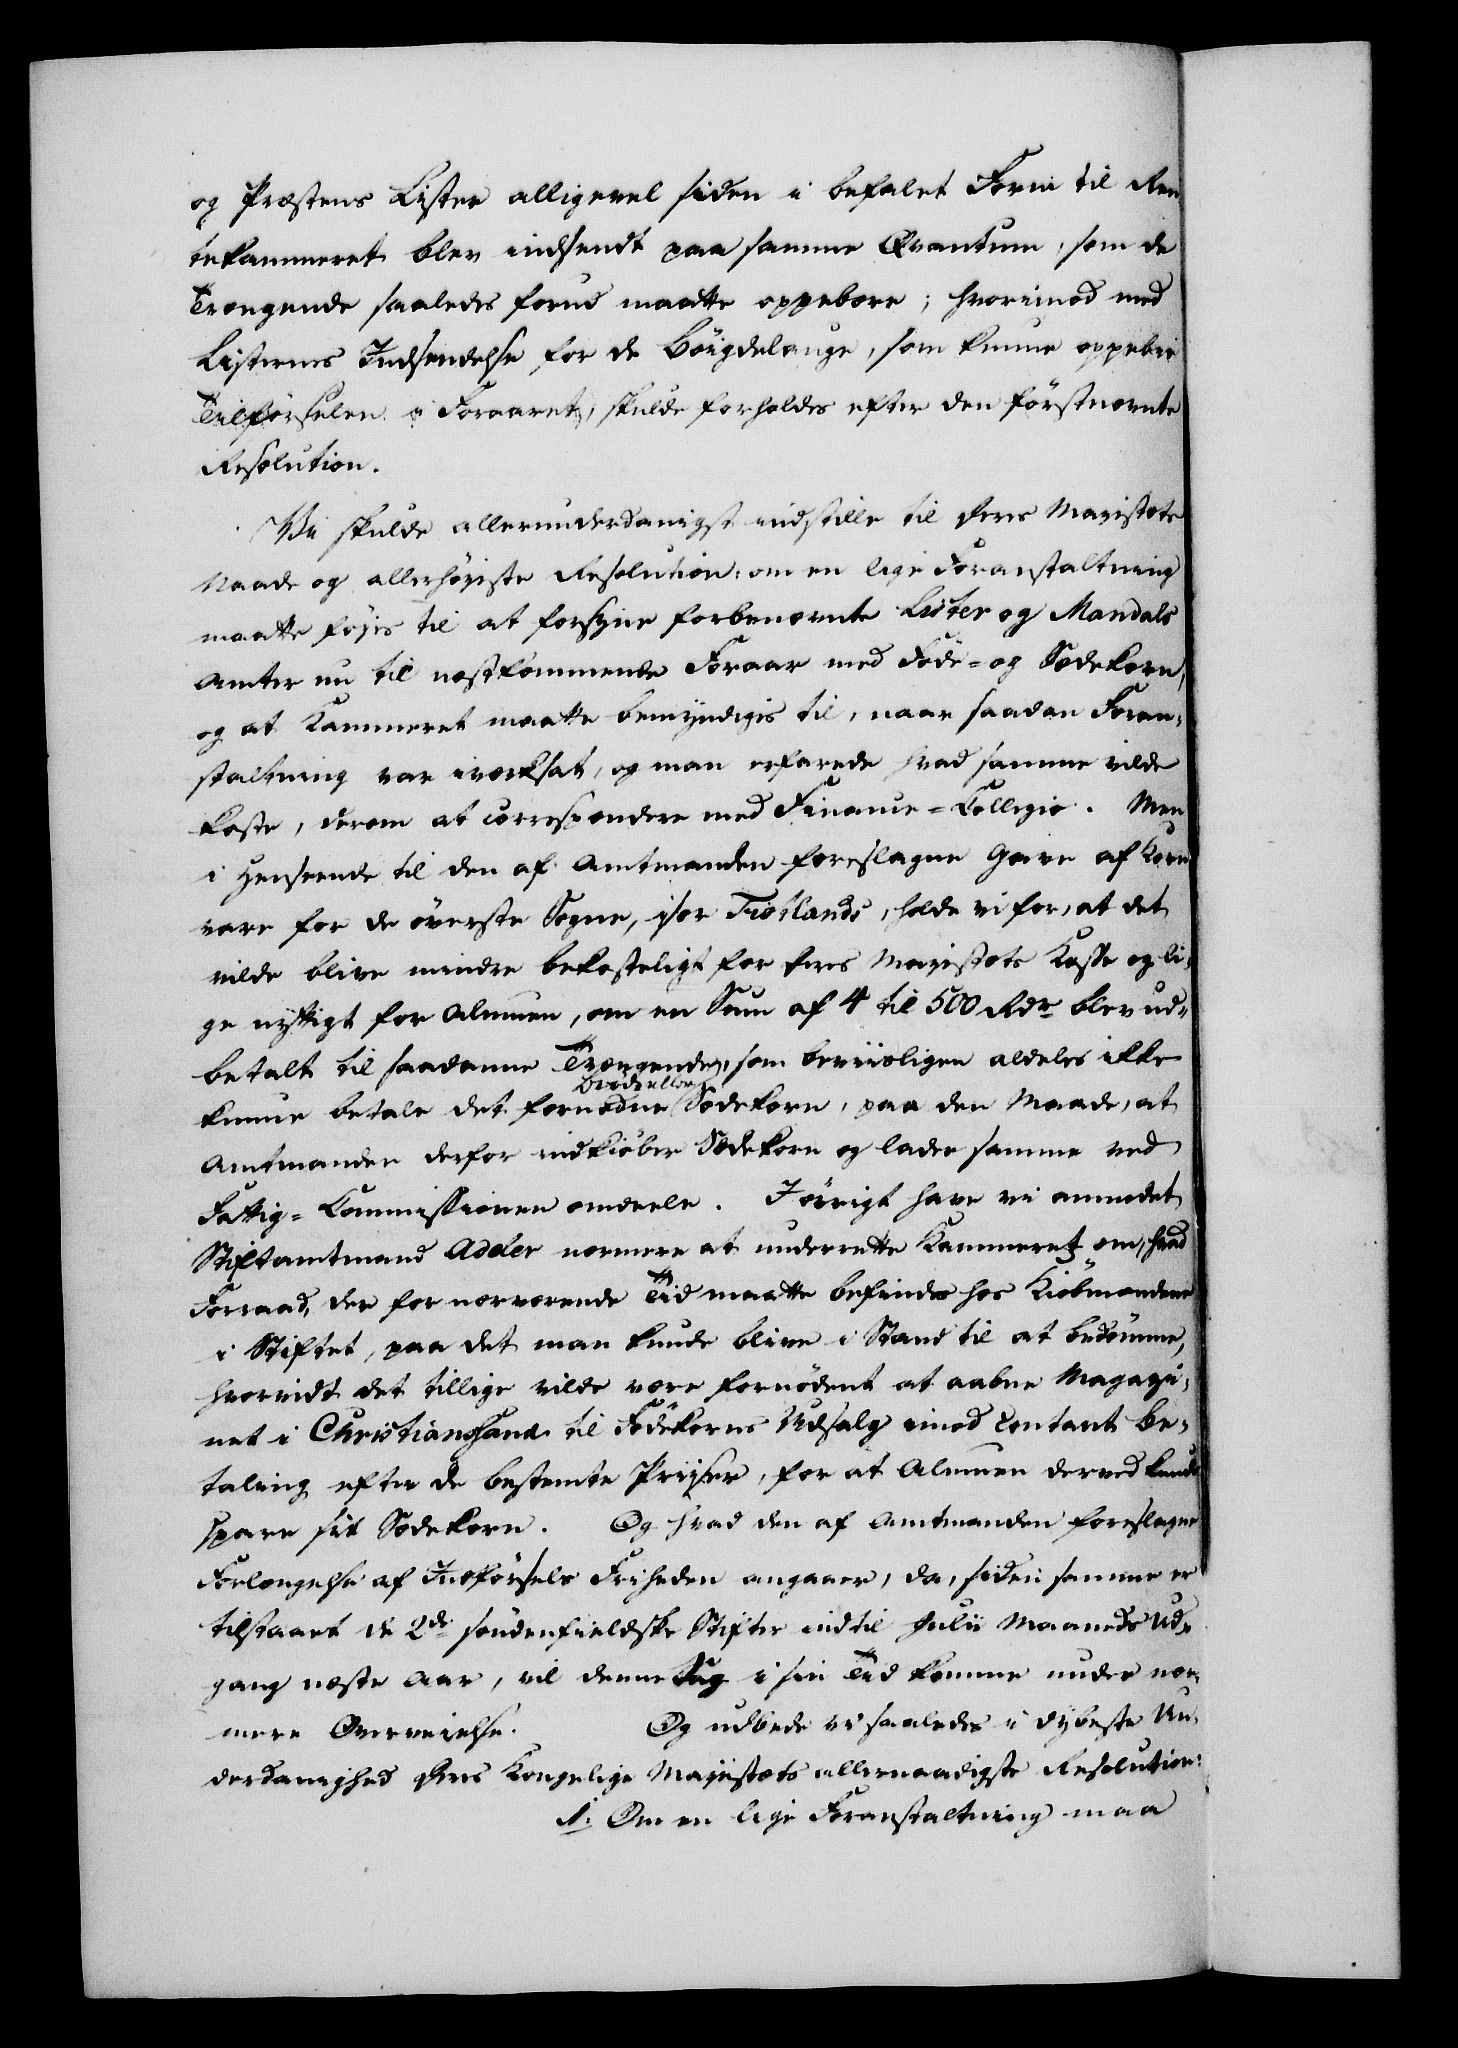 og Præstens Lister alligevel siden i befalet Form til Ren
tekammeret blev indsendt paa samme Qvantum, som de
Trængende saaledes forud maatte oppebære; hvorimod med
Listernes Indsendelse for de Böigdelauge, som kunne oppebie
Tilförselen i Foraaret, skulde forholdes efter den förstnævnte
Resolution.
Vi skulde allerunderdanigst indstille til Deres Majestæts
Naade og allerhöjeste Resolution: om en lige Foranstaltning
maatte föjes til at forsyne forbenævnte Lister og Mandals
Amter nu til næstkommende Foraar med Föde= og Sædekorn,
og at Kammeret maatte bemyndiges til, naar saadan Foran-
staltning var iværksat, og man erfarede hvad samme vilde
koste, derom at correspondere med Finance=Collegio. Men
i Henseende til den af Amtmanden foreslagne Gave af Korn
vare for de överste Sogne, især Fiotlands, holde vi for, at det
vilde blive mindre bekosteligt for Deres Majestæts Kasse og li-
ge nyttigt for Almuen, om en Sum af 4 til 500 Rdr blev ud-
betalt til saadanne Trængende, som beviisligen aldeles ikke
kunne betale det fornödne Bröd eller Sædekorn, paa den Maade, at
Amtmanden derfor indkiöber Sædekorn og lader samme ved
Fattig=Commissionen omdeele. Iövrigt have vi anmodet
Stiftamtmand Adeler nærmere at underrette Kammeret om, hvad
Forraad, der for nærværende Tid maatte befindes hos Kiöbmændene
i Stiftet, paa det man kunde blive i Stand til at bedömme,
hvorvidt det tillige vilde være fornödent at aabne Magazi-
net i Christiansand til Födekorns Udsalg imod contant Be-
taling efter de bestemte Priiser, for at Almuen derved kunde
spare sit Sædekorn. Og hvad den af Amtmanden foreslagne
Forlængelse af Indförsels Friheden angaaer, da, siden samme er
tilstaaet de 2de söndenfieldske Stifter indtil Julii Maaneds Ud-
gang næste Aar, vil denne Sag i sin Tid komme under nær-
mere Overveielse. Og udbede vi saaledes i dybeste Un-
derdanighed Deres Kongelige Majestæts allernaadigste Resolution:
1. Om en lige Foranstaltning maa